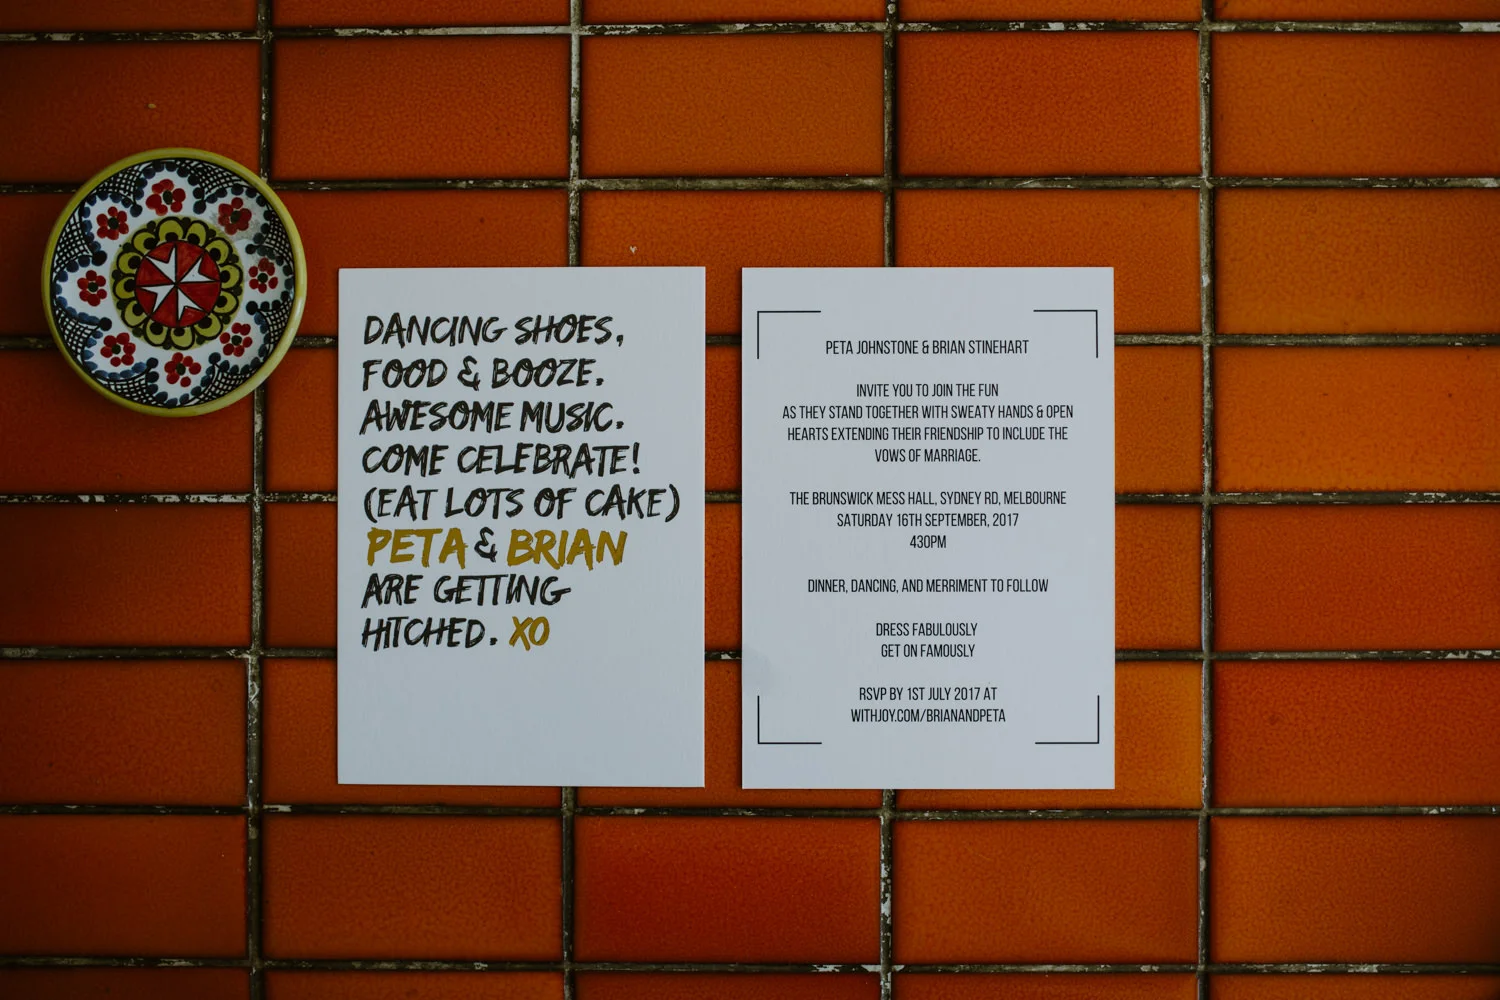 DANCING SHOES,
FOOD & BOOZE.
AWESOME MUSIC.
COME CELEBRATE!
(EAT LOTS OF CAKE)
PETA & BRIAN
ARE GETTING
HITCHED. XO
PETA JOHNSTONE & BRIAN STINEHART
INVITE YOU TO JOIN THE FUN
AS THEY STAND TOGETHER WITH SWEATY HANDS & OPEN
HEARTS EXTENDING THEIR FRIENDSHIP TO INCLUDE THE
VOWS OF MARRIAGE.
THE BRUNSWICK MESS HALL, SYDNEY RD, MELBOURNE
SATURDAY 16TH SEPTEMBER, 2017
430PM
DINNER, DANCING, AND MERRIMENT TO FOLLOW
DRESS FABULOUSLY
GET ON FAMOUSLY
RSVP BY 1ST JULY 2017 AT
WITHJOY.COM/BRIANANDPETA